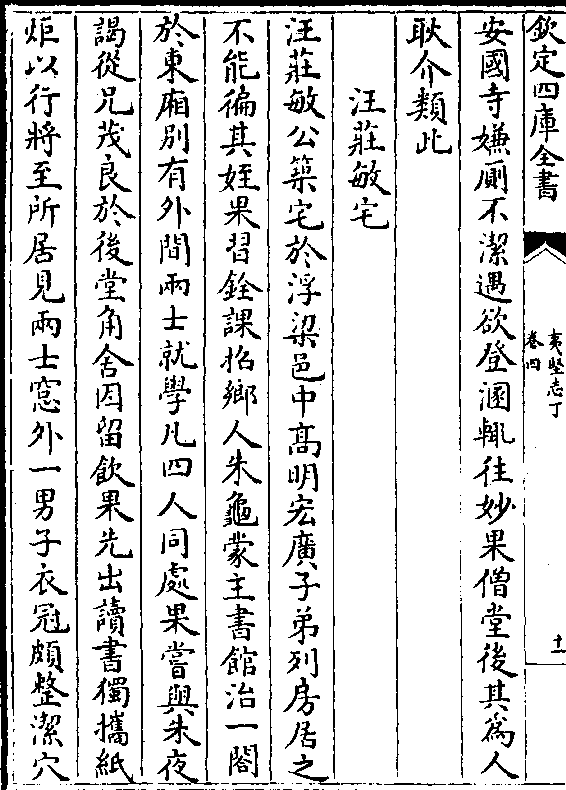 欽定四庫全書
夷堅志丁
卷四
十一
安國寺嫌厠不潔遇欲登溷輒往妙果僧堂後其為人
耿介類此
汪莊敏宅
汪莊敏公築宅於浮梁邑中髙明宏廣子弟列房居之
不能徧其姪果習銓課招鄉人朱龜蒙主書館治一閤
於東廂别有外間兩士就學凡四人同處果嘗與朱夜
謁從兄茂良於後堂角舍因留飲果先出讀書獨攜紙
炬以行將至所居見兩士窓外一男子衣冠頗整潔穴